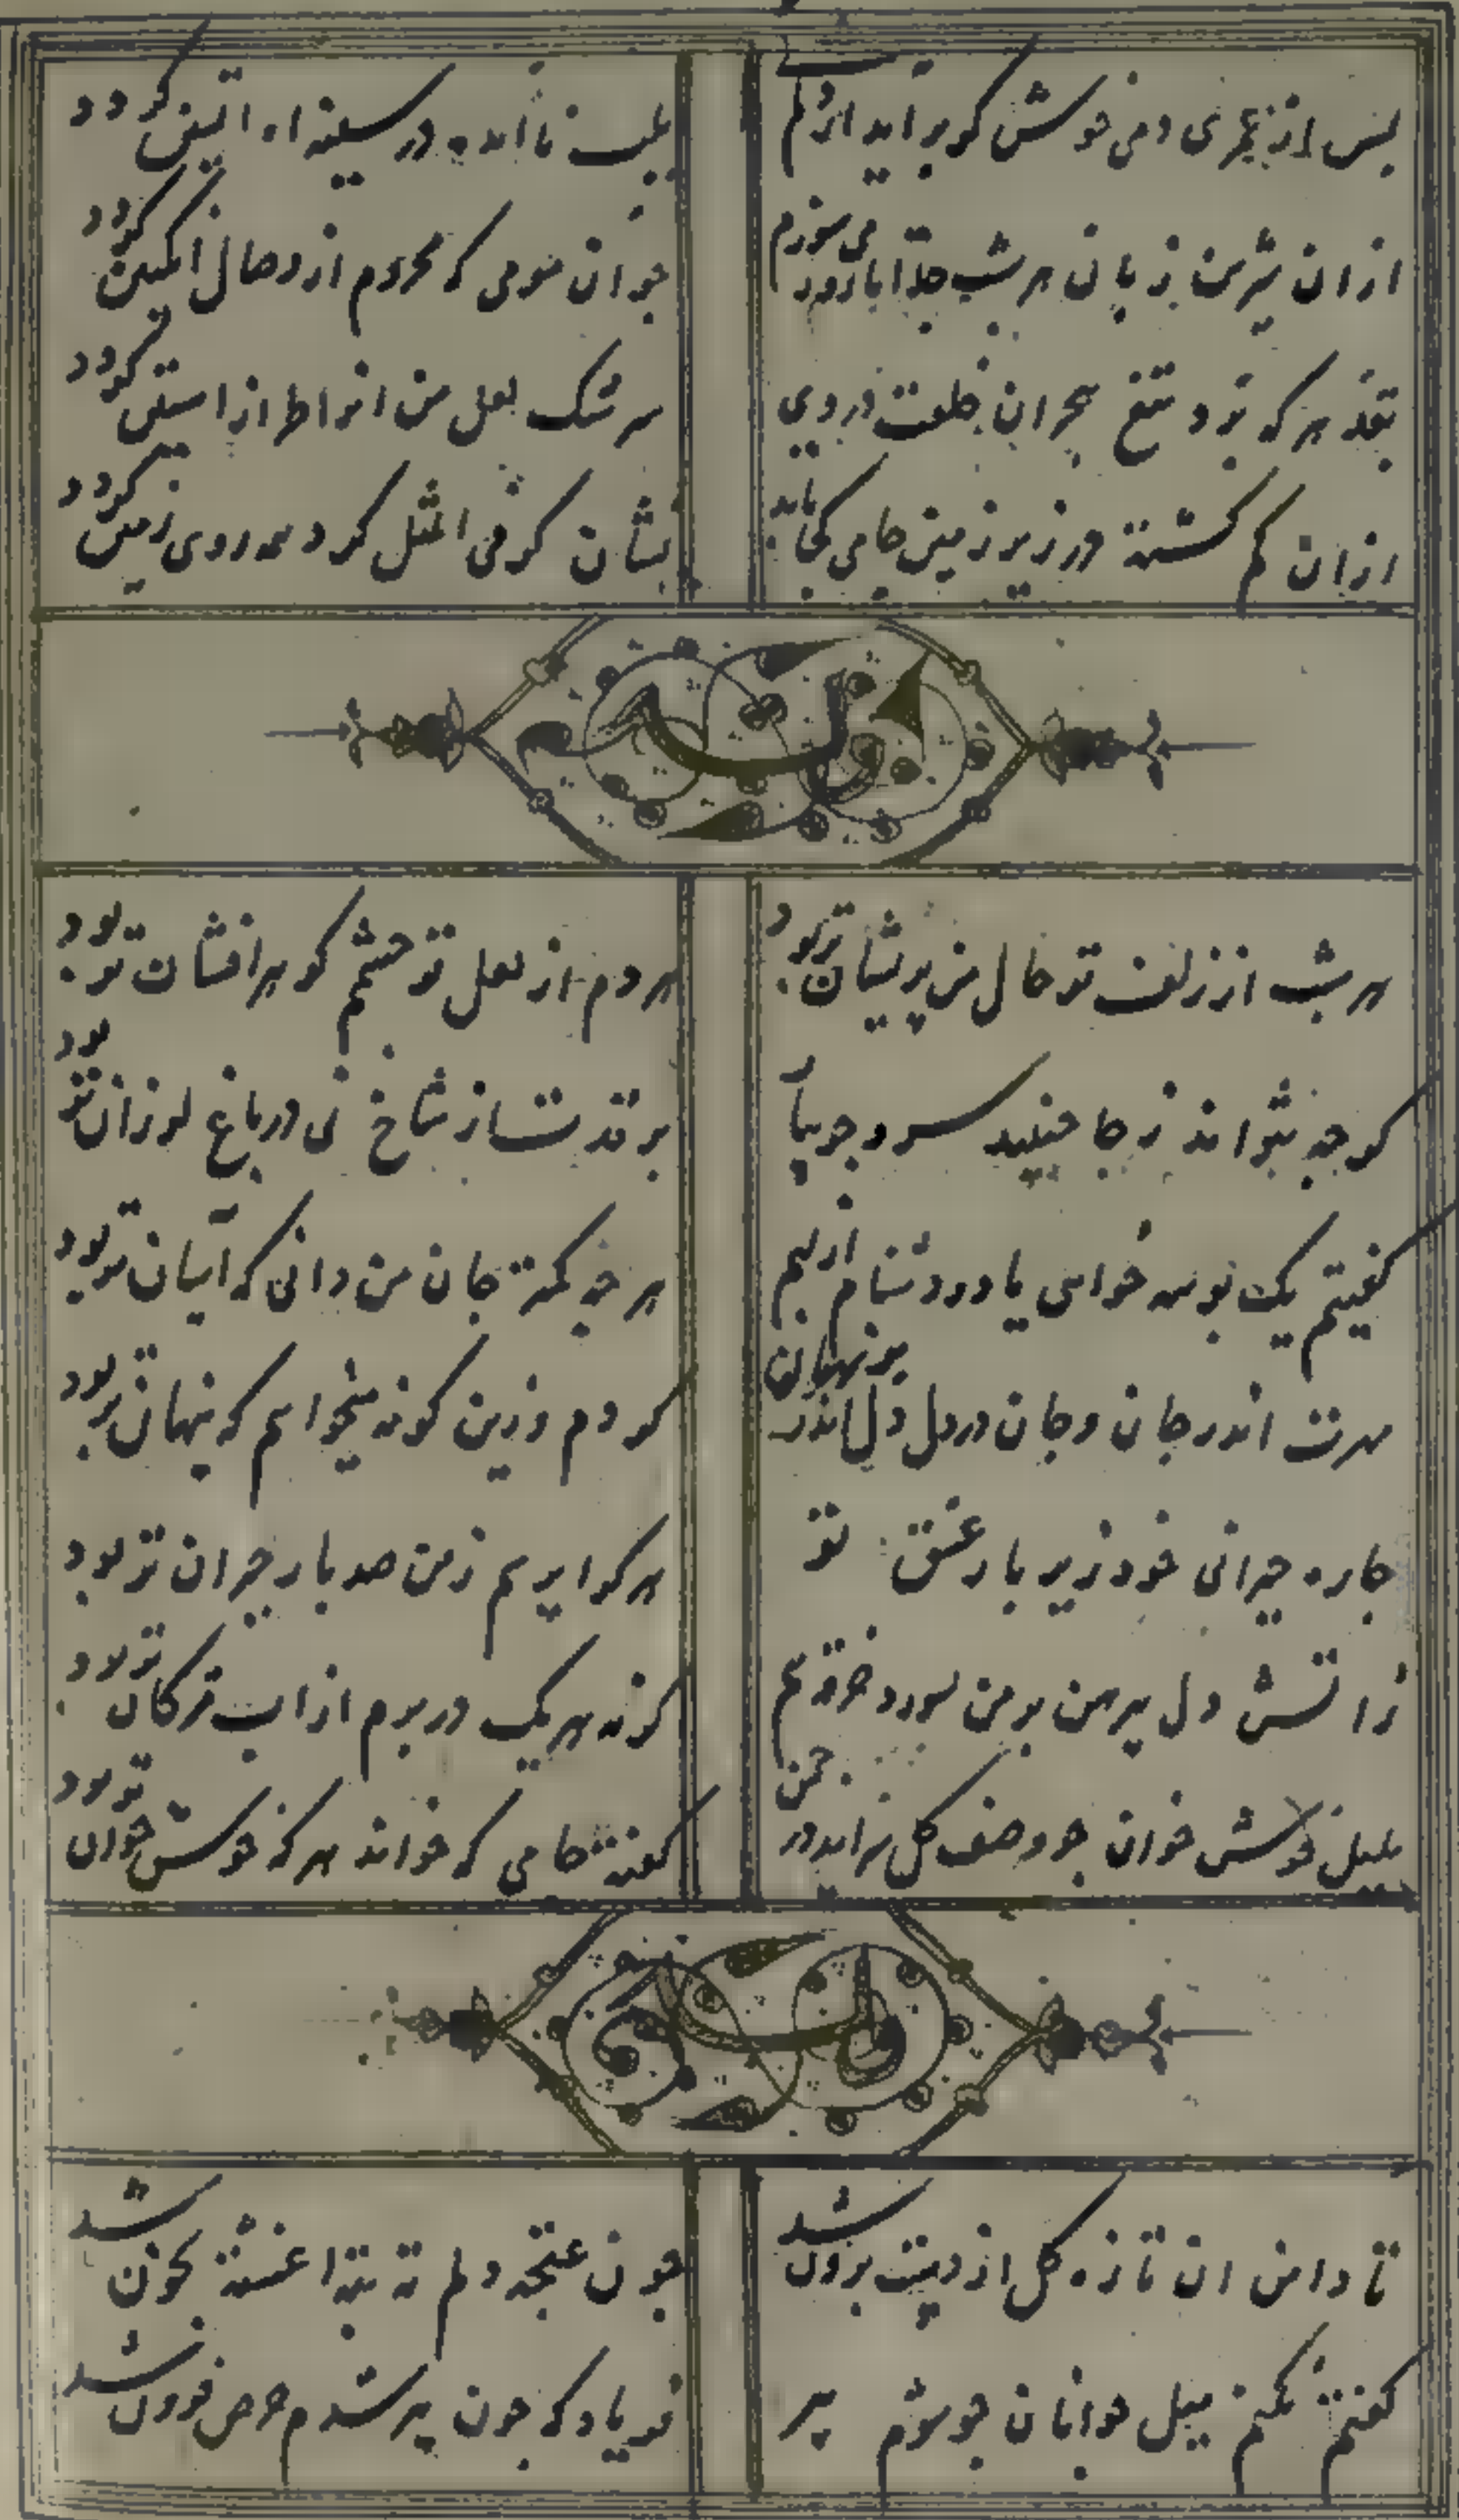 پس از عمری دمی خوش کو برآید از دلم
بلب ناآمده در سینه آه آتشین گردد
از آن شیرین زبان هر شب جدا با درد می سوزم
چو آن مومی که محروم از وصال انگبین گردد
بقد هر که برد تیغ هجران خلعت دردی
سرشک لعل من آنرا طراز آستین گردد
از آن گم گشته در زیر زمین جامی کجا یابد
نشان گر فی المثل گرد همه روی زمین گردد
هر شب از زلف تو حال من پریشان تر بود
هر دم از لعل تو چشمم گوهر افشان تر بود
گر چه نتواند ز جا جنبید سرو جویبار
بر قدت از شاخ نی در باغ لرزان تر بود
گفتیم یک بوسه خواهی یا دو دشنام از لبم
هر چه گمته جان من دانی که آسان تر بود
مهرت اندر جان و جان در دل دل اندر بر نهان
کردم وزین گونه میخواهم که پنهان تر بود
چاره حیرانی خود زیر بار عشق تو
هر کرا پرسم ز من صد بار حیران تر بود
ز آتش دل پیرهن بر من بسوزد خرقه هم
گرنه هر یک در برم از آب مژگان تر بود
بلبل خوش خوان جز وصف گل نراید در چمن
گفته جامی که خواند هر که خوش خوان تر بود
تا دامن آن تازه گل از دست برون شد
چون غنچه دلم ته بته آغشته بخون شد
گفتم نکنم میل جوانان چو شوم پیر
فریاد که چون پیر شدم حرص فزون شد